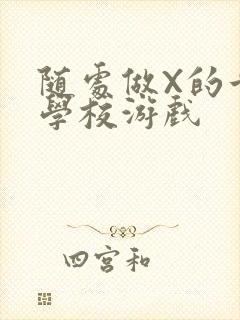 随處做X的
學校游戲
四宮和